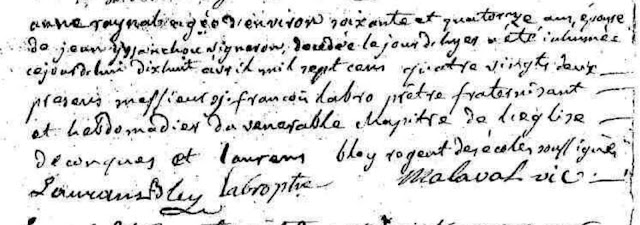 anne raynal agée d'environ soixante et quatorze ans, épouse
de jean manchou vigneron, decedée le jour d'hyer a été inhumée
cejourdhui dixhuit avril mil sept cens quatre vingts deux
presens messieurs françois labro prêtre fraternisant
et hebdomadier du venerable chapitre de l'eglise
de conques et laurens bley regent des ecoles soussignés
Laurans Bley labro ptre Malaval vic.